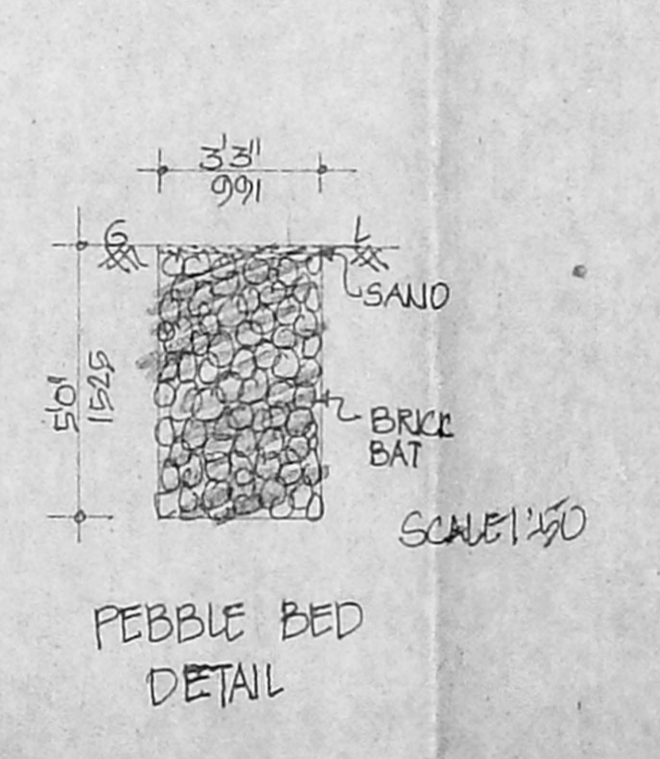 3'3"
991
G L
SAND
5'0"
1525
BRICK
BAT
SCALE 1:50
PEBBLE BED
DETAIL